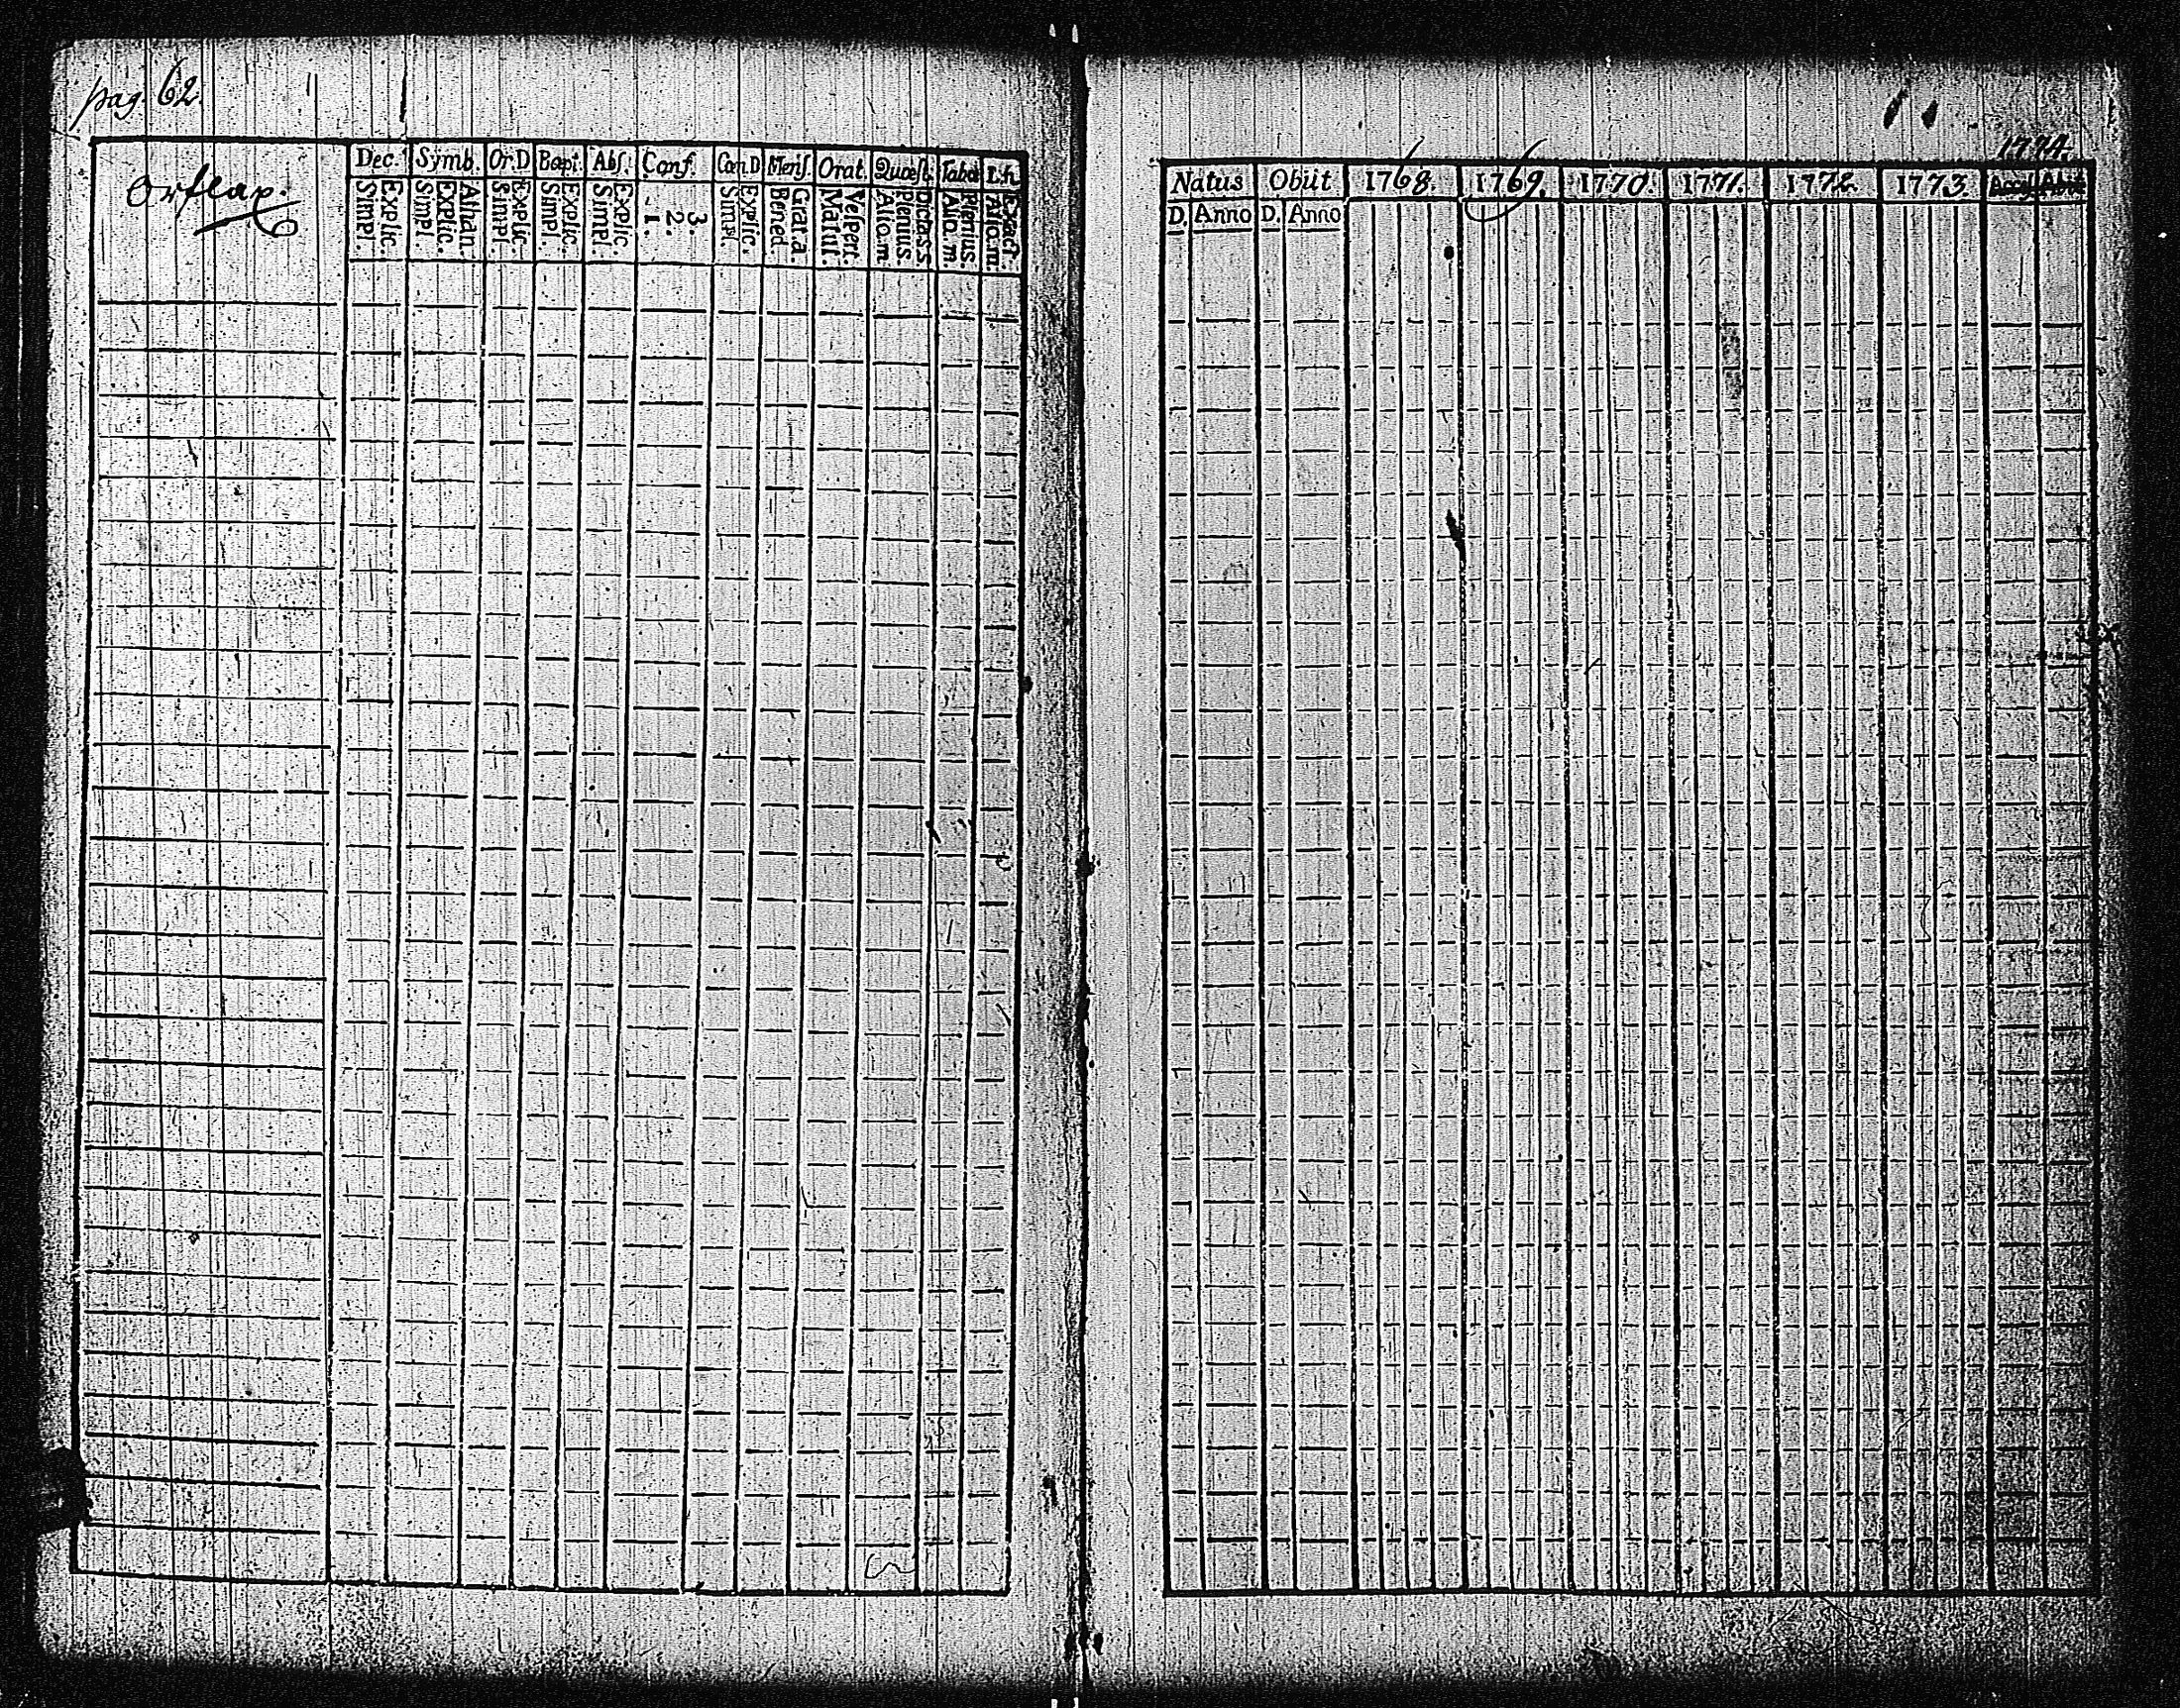 pag. 62.
Dec. Symb. Or.D Bapt. Abs. Conf. Can.D Mens. Orat. Quæst. Tabul
Simpl. Explic. Simpl. Explic. Athan. Simpl. Explic. Simpl. Explic. Simpl. Explic. 1. 2. 3. Simpl. Explic. Bened. Grat.a. Matut. Vesper. Alio.m. Plenius. Dictas.s Alio.m Plenius. Alio.m Exact.
1774.
Natus Obiit 1768. 1769. 1770. 1771. 1772. 1773. Abiit
D. Anno D. Anno